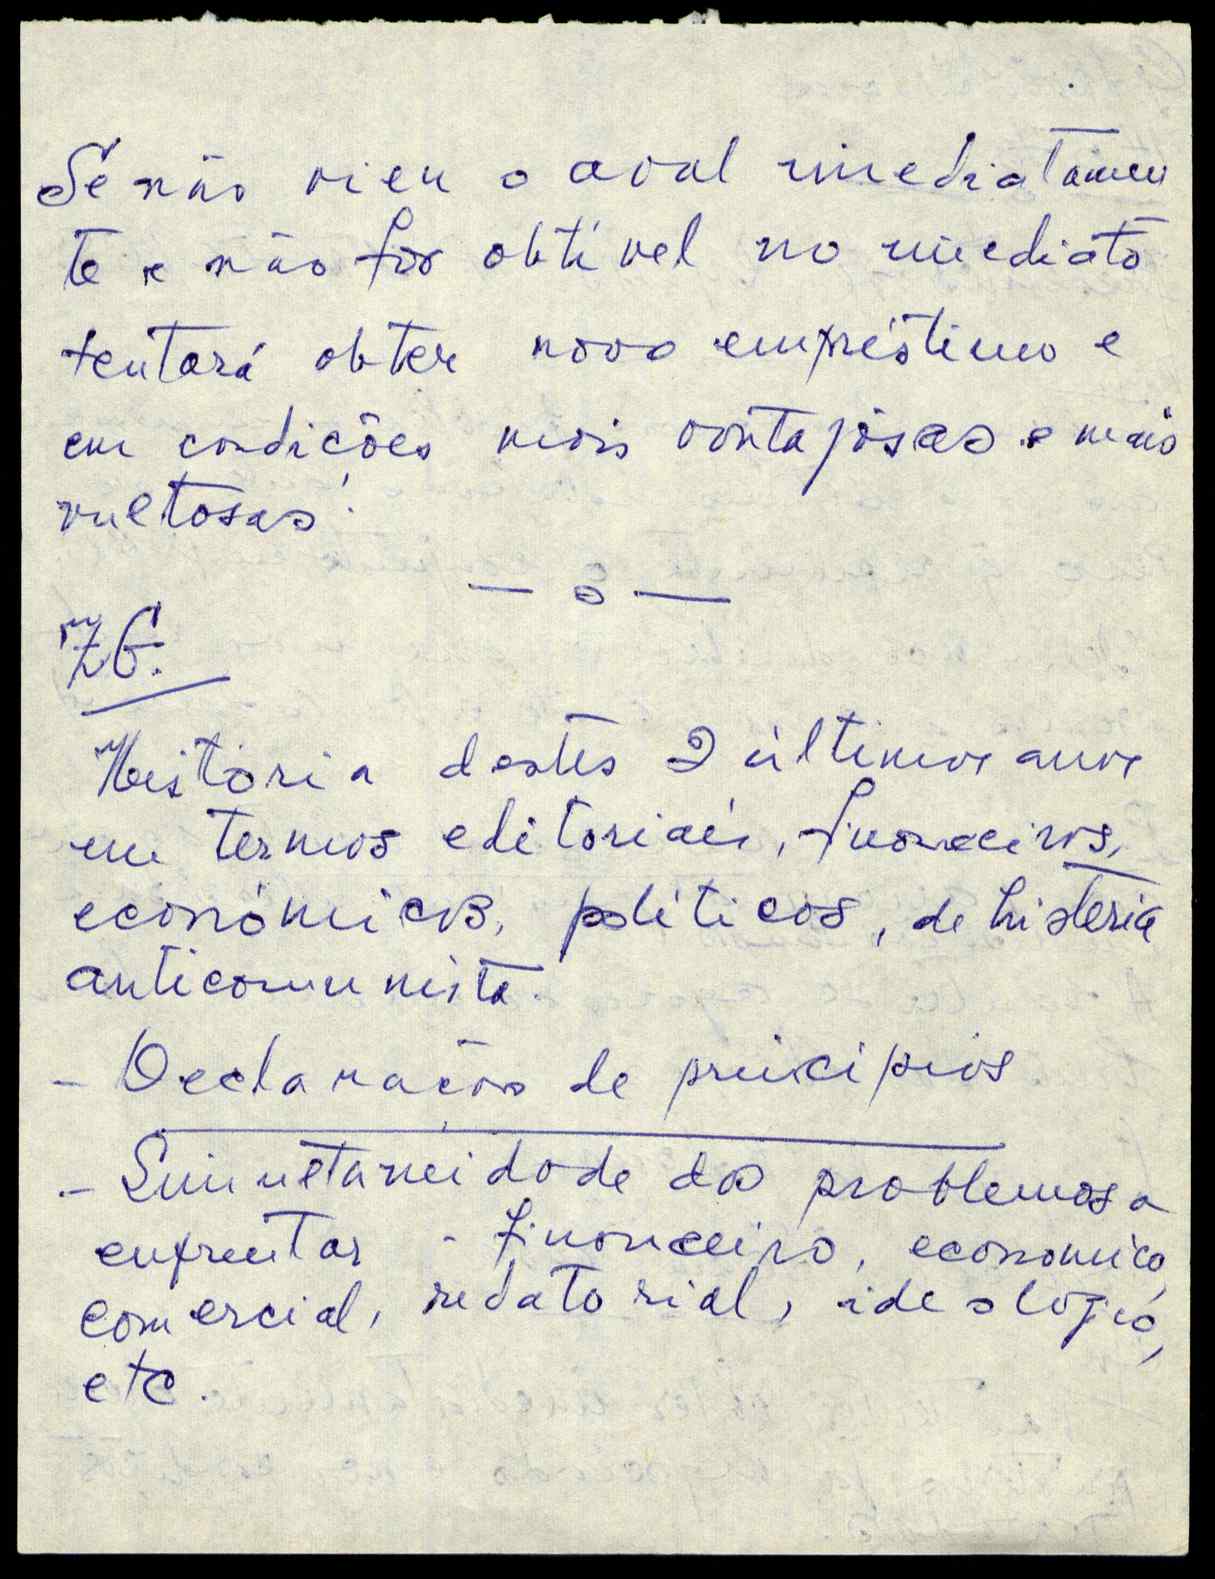 Se não vier o aval imediatamen
te e não for obtível no imediato
tentará obter novo empréstimo e
em condições mais vantajosas e mais
vultosas.
— o —
ZG.
História destes 2 últimos anos
em termos editoriais, financeiros,
económicos, políticos, de histeria
anticomunista.
- Declaração de princípios
- Simultaneidade dos problemas a
enfrentar - financeiro, economico,
comercial, redatorial, ideologico,
etc.